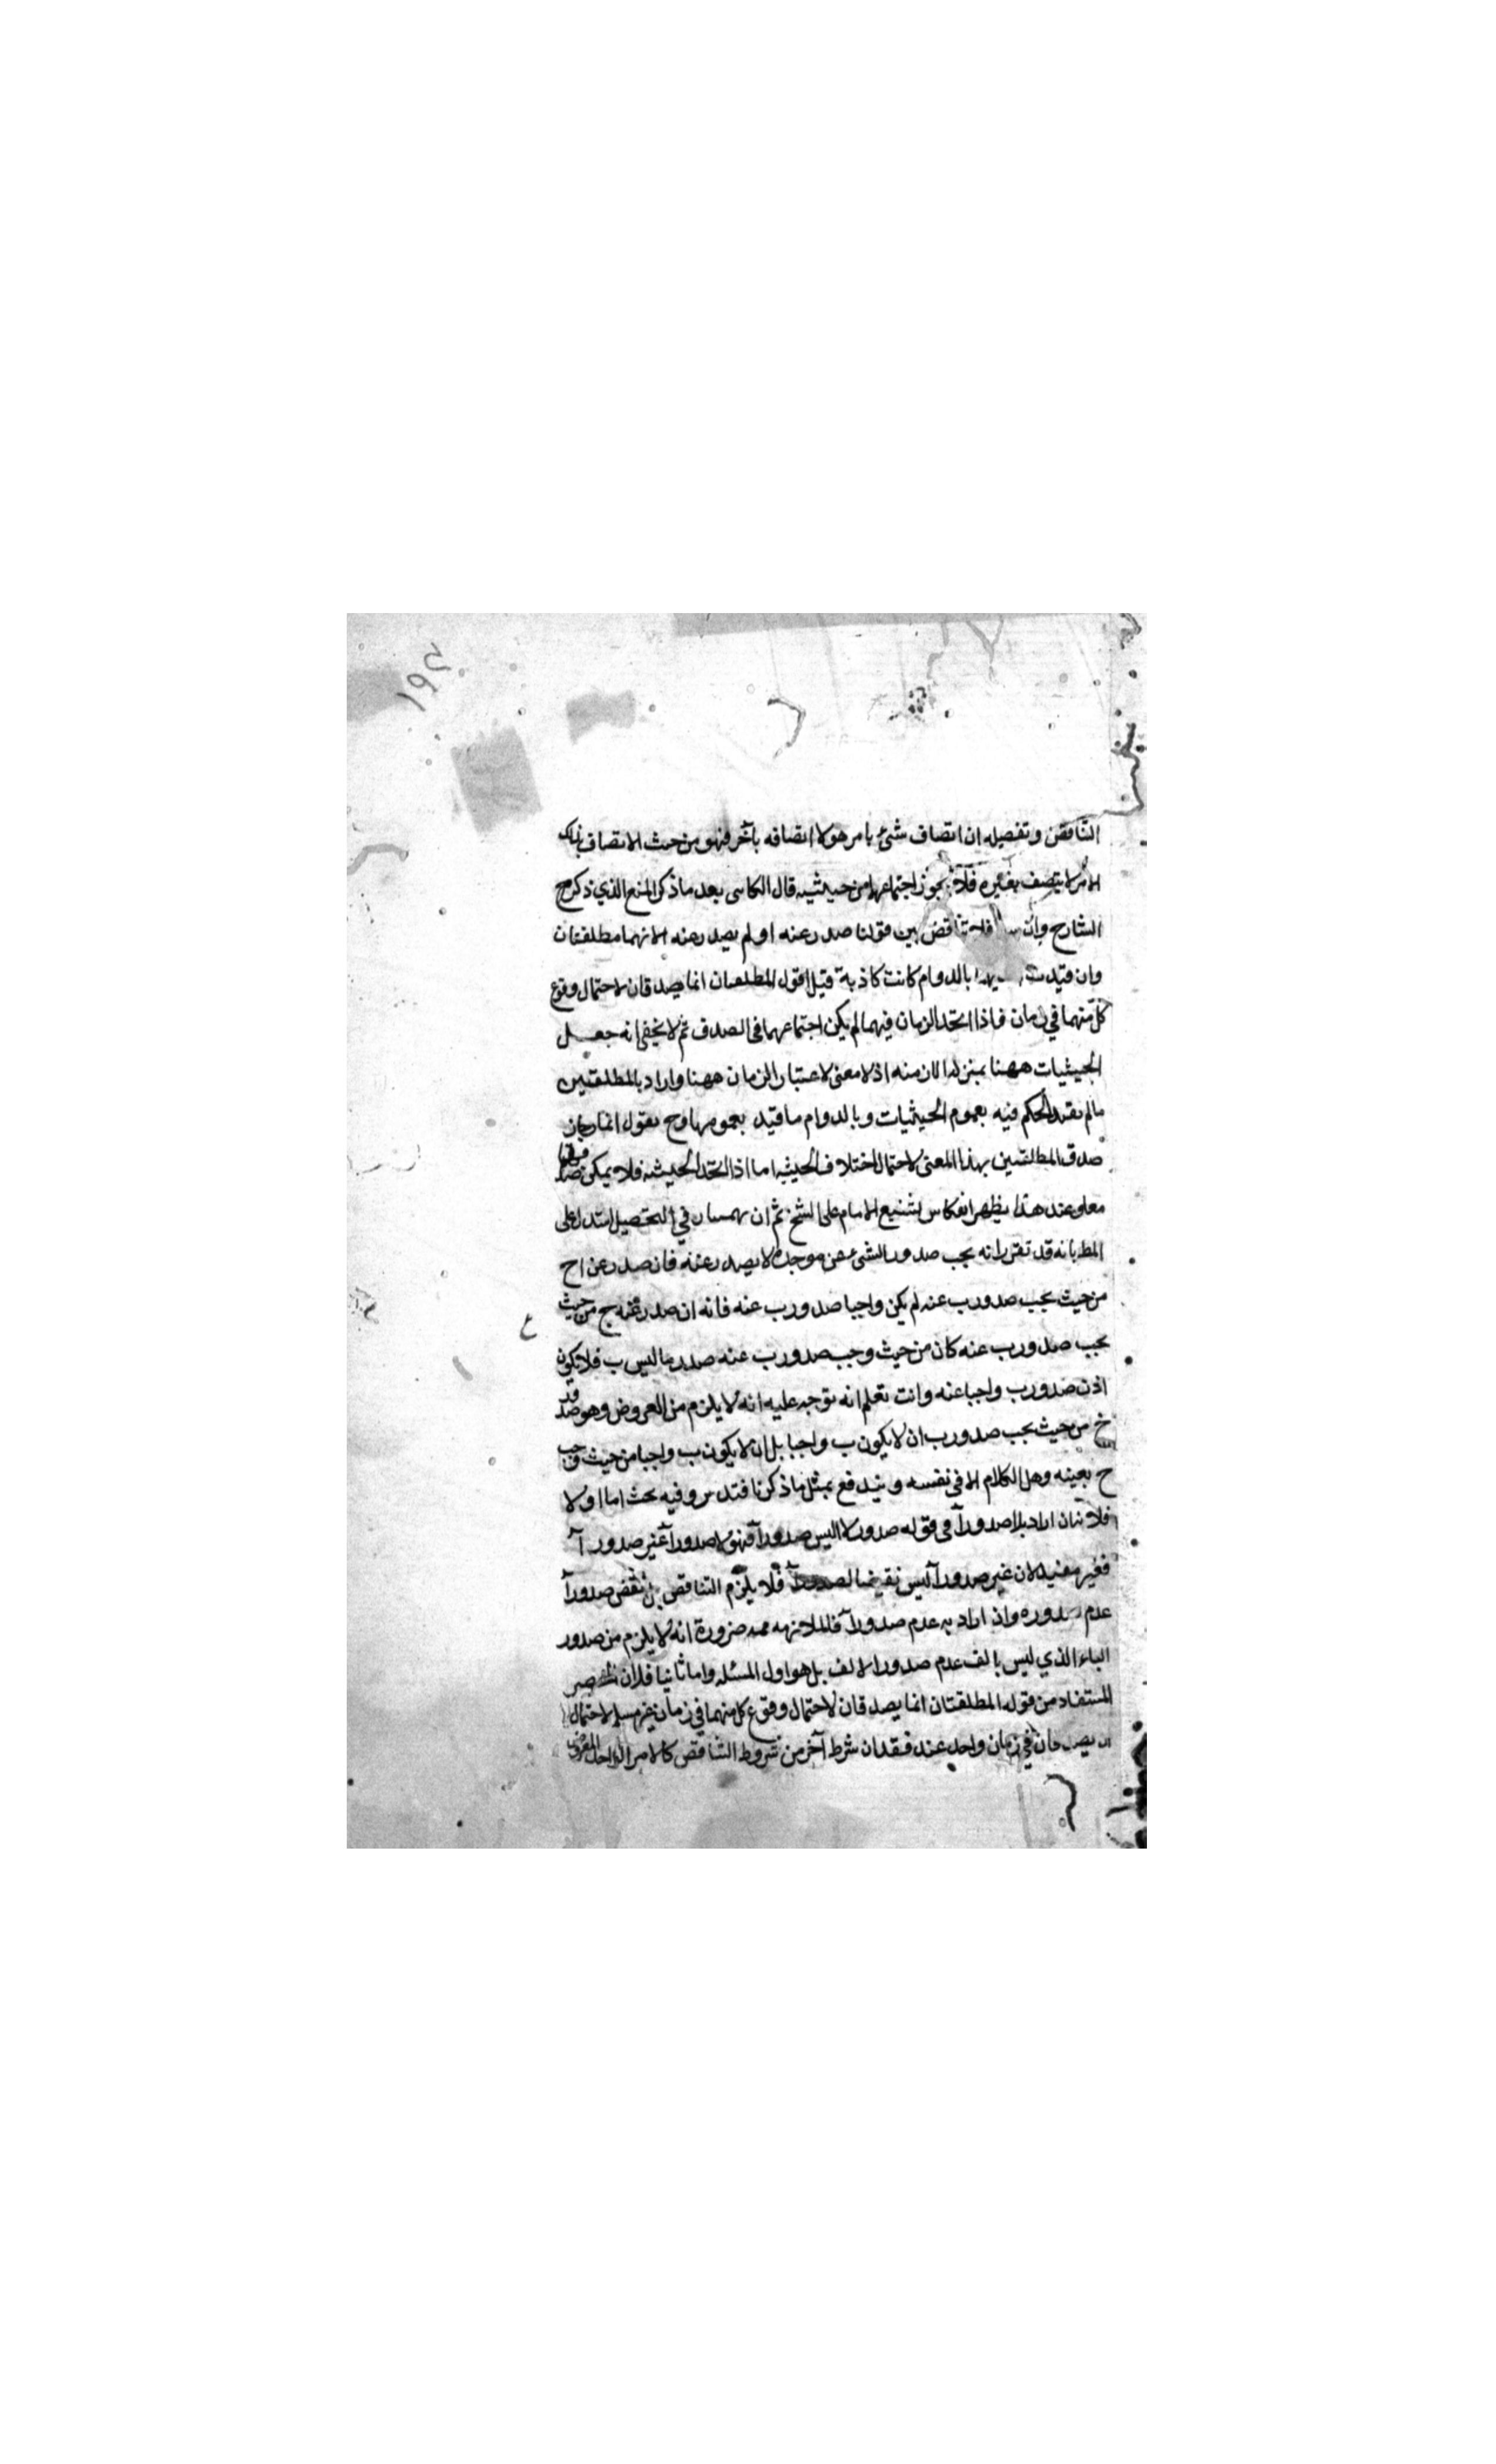 ١٩٢
التناقض وتفصيله ان اتصاف شئ بامر هو لا اتصافه بآخر فهو من حيث الاتصاف بذلك
الامر لا يتصف بغيره فلا يجوز اجتماعهما من حيثية قال الكاسى بعد ما ذكر المنع الذي ذكره ح
الشارح وان فلا تناقض بين قولنا صدر عنه او لم يصدر عنه لانهما مطلقتان
وان قيدت بالدوام كانت كاذبة قيل اقول المطلقتان انما يصدقان لاحتمال وقوع
كل منهما في زمان فاذا اتحد الزمان فيهما لم يكن اجتماعهما فى الصدق ثم لا يخفى انه جعل
الحيثيات ههنا بمنزلة الازمنه اذ لا معنى لاعتبار الزمان ههنا واراد بالمطلقتين
ما لم يقيد الحكم فيه بعموم الحيثيات وبالدوام ما قيد بعمومها وح نقول انما جاز
صدق المطلقتين بهذا المعنى لاحتمال اختلاف الحيثية اما اذا اتحد الحيثيه فلا يمكن صدقهما
معا وعند هذا يظهر انعكاس تشنيع الامام على الشيخ ثم ان بهمنيار في التحصيل استدل على
المط بانه قد تقرر انه يجب صدور الشئ عن موجده لا يصدر عنه فان صدر عن ا ح
من حيث يجب صدور ب عنه لم يكن واجبا صدور ب عنه فانه ان صدر عنه ج من حيث
يجب صدور ب عنه كان من حيث وجب صدور ب عنه صدر ما ليس ب فلا يكون
اذن صدور ب واجبا عنه وانت تعلم انه توجه عليه انه لا يلزم من العروض وهو صدور
ح من حيث يجب صدور ب ان لا يكون ب واجبا بل ان لا يكون ب واجبا من حيث وجب
ح بعينه وهل الكلام الا فى نفسه ويندفع بمثل ما ذكرنا فتدبر وفيه بحث اما اولا
فلانه ان اراد بلا صدور آ فى قوله صدور لا ا ليس صدور آ فهو لا صدور آ غير صدور آ
فغير مفيد لان غير صدور آ ليس نقيضا لصدور آ فلا يلزم التناقض نقيض صدور آ
عدم صدوره وان اراد به عدم صدور آ فالملازمه ممه ضرورة انه لا يلزم من صدور
الباء الذي ليس بالف عدم صدور الالف بل هو اول المسئله واما ثانيا فلان الحصر
المستفاد من قوله المطلقتان انما يصدقان لاحتمال وقوع كل منهما في زمان غير مسلم لاحتمال
ان يصدقان في زمان واحد عند فقدان شرط آخر من شروط التناقض كالامر الواحد المفروض